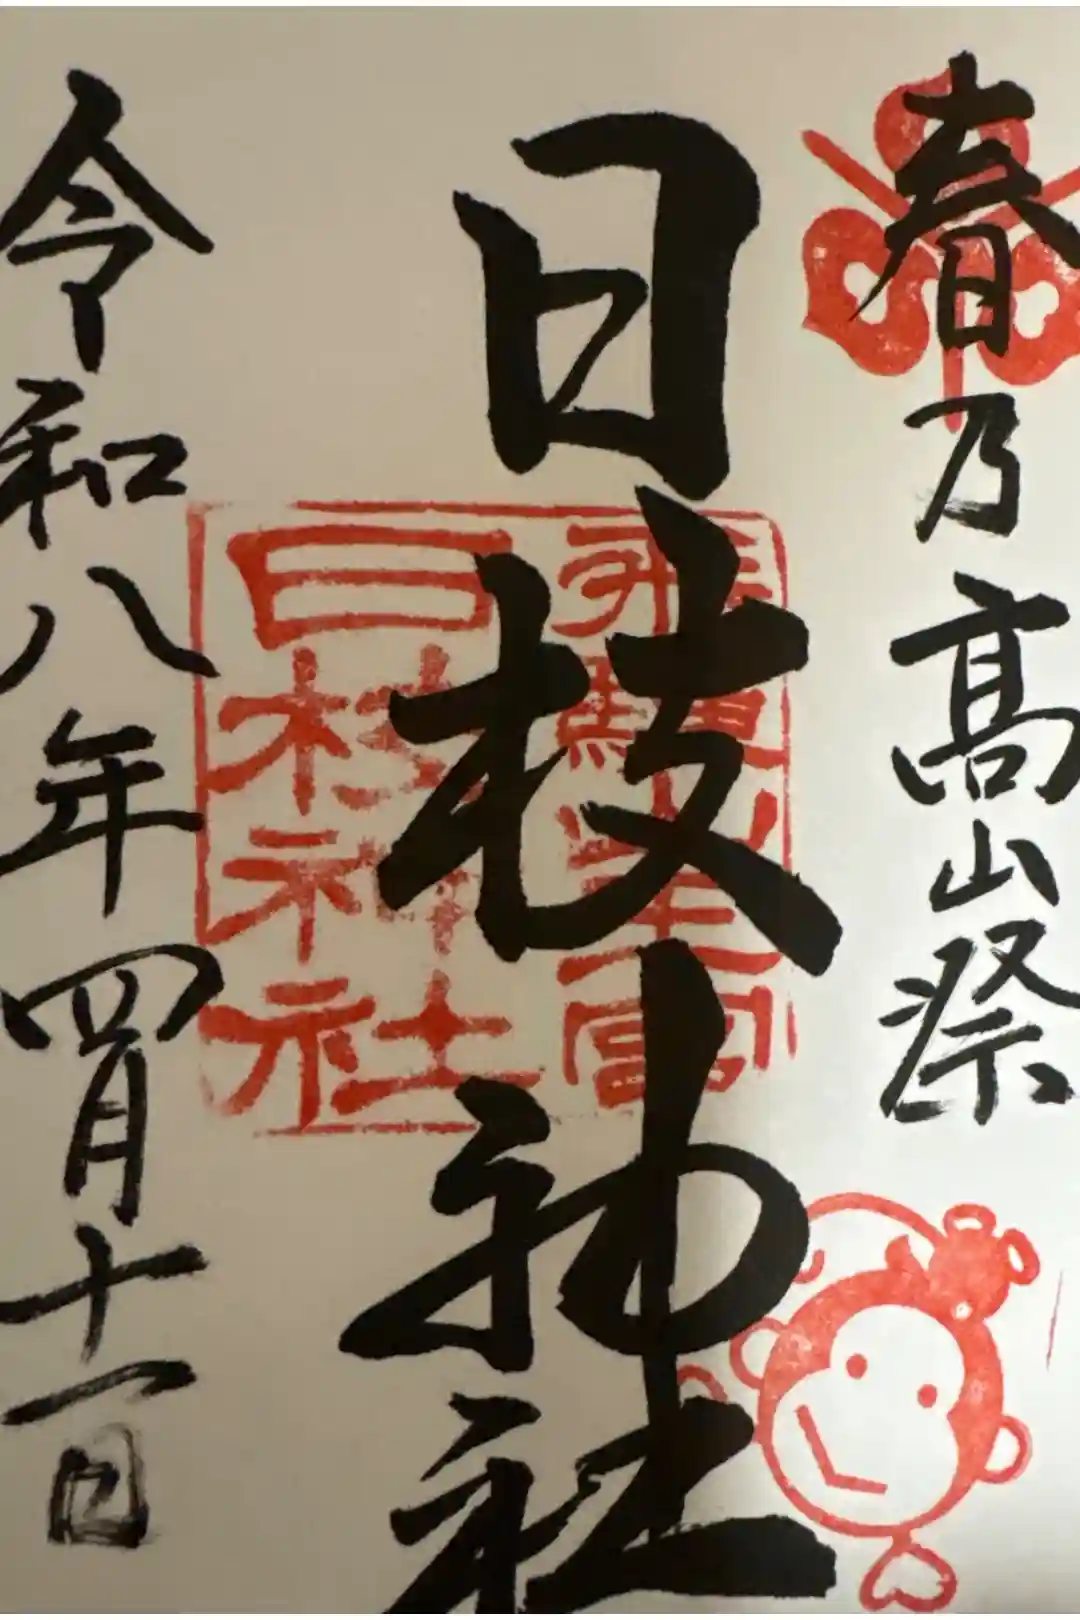 春乃高山祭
日枝神社
飛騨山王宮
日枝神社
令和八年四月十一日